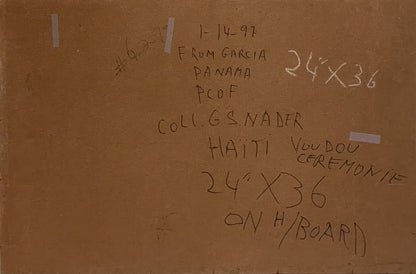 1-14-97
#627
FROM GARCIA
PANAMA
24"X36
PCOF
COLL. G.S. NADER
HAÏTI VOUDOU
CEREMONIE
24"X36
ON H/BOARD